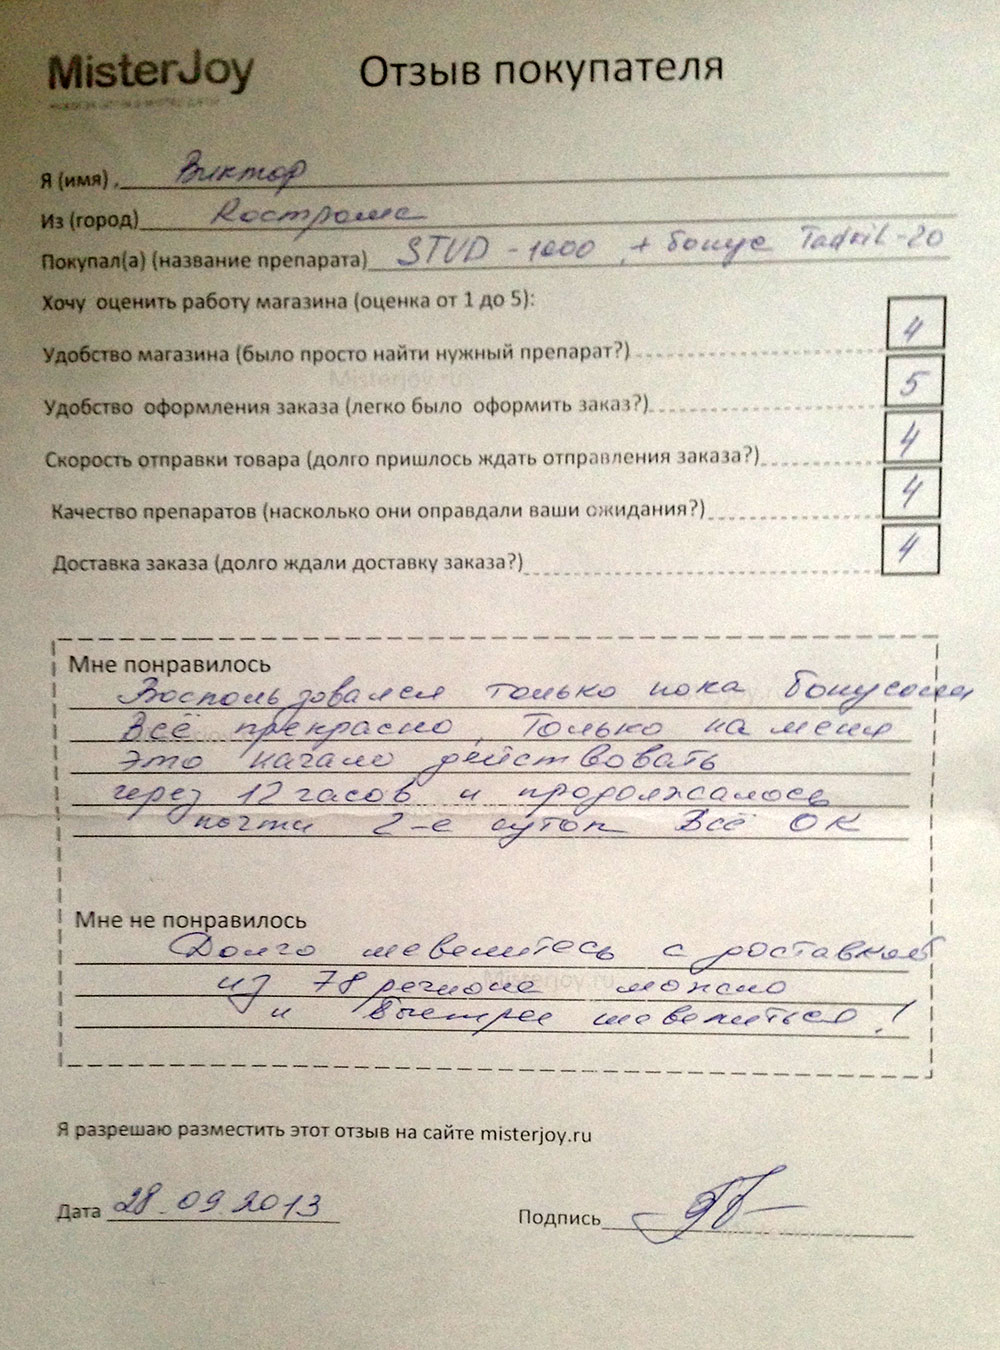 MisterJoy
Отзыв покупателя
Я (имя) Виктор
Из (город) Кострома
Покупал(а) (название препарата) STUD-1000, + бонус Tadril-20
Хочу оценить работу магазина (оценка от 1 до 5):
Удобство магазина (было просто найти нужный препарат?) 4
Misterjoy.ru
Удобство оформления заказа (легко было оформить заказ?) 5
Скорость отправки товара (долго пришлось ждать отправления заказа?) 4
Качество препаратов (насколько они оправдали ваши ожидания?) 4
Доставка заказа (долго ждали доставку заказа?) 4
Мне понравилось
Воспользовался только пока бонусом
Всё прекрасно, Только на меня
Это начало действовать
через 12 часов и продолжалось
почти 2-е суток Всё ОК
Мне не понравилось
Долго шевелитесь с доставкой
из 78 региона можно
Misterjoy.ru
и быстрее шевелиться!
Я разрешаю разместить этот отзыв на сайте misterjoy.ru
Дата 28.09.2013
Подпись